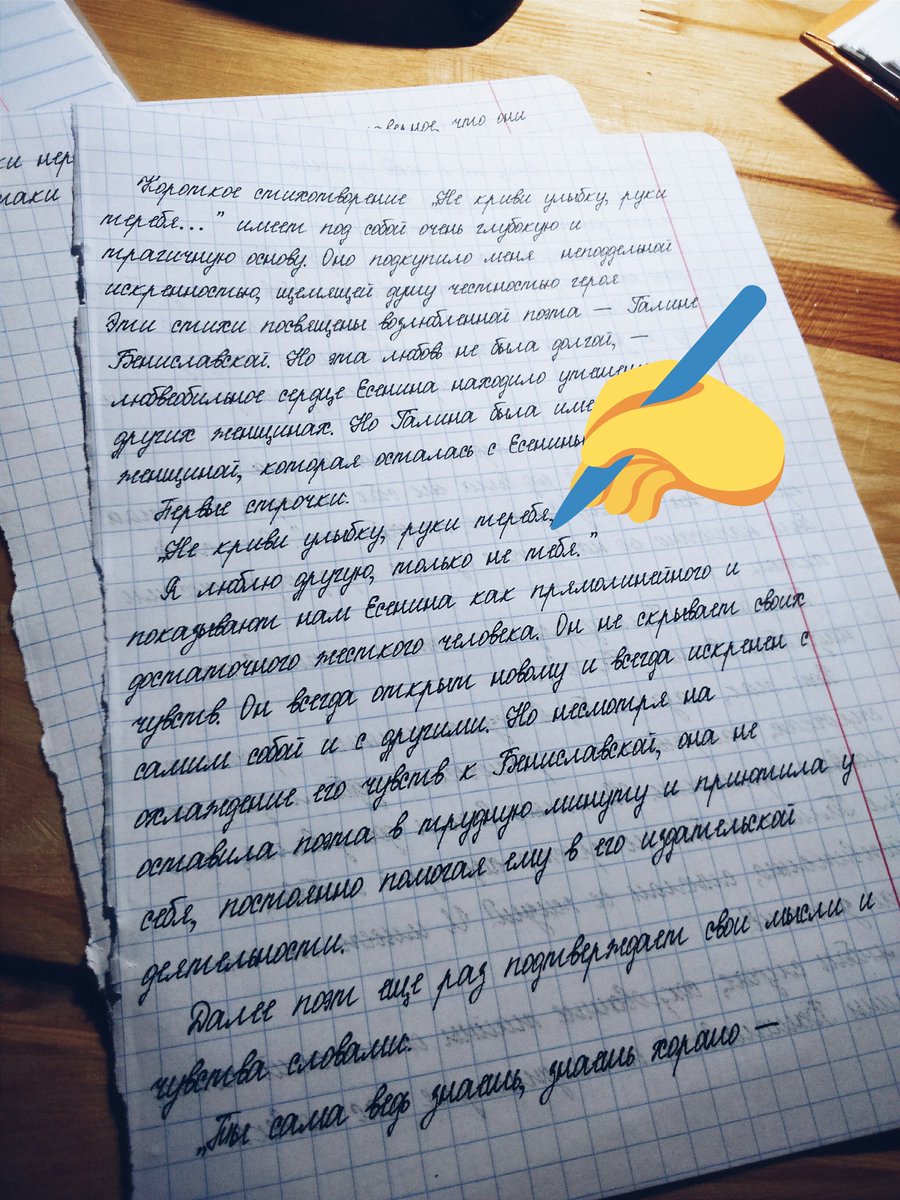 что они
ки
таки
Короткое стихотворение „Не криви улыбку, руки
теребя..." имеет под собой очень глубокую и
трагичную основу. Оно подкупило меня неподдельной
искренностью, щемящей душу честностью героя
Эти стихи посвящены возлюбленной поэта — Галине
Бениславской. Но эта любовь не была долгой, —
любвеобильное сердце Есенина находило
других женщинах. Но Галина была
женщиной, которая осталась с
Первые строчки:
„Не криви улыбку, руки теребя,
Я люблю другую, только не тебя."
показывают нам Есенина как прямолинейного и
достаточного жесткого человека. Он не скрывает своих
чувств. Он всегда открыт новому и всегда искренен с
самим собой и с другими. Но несмотря на
охлаждение его чувств к Бениславской, она не
оставила поэта в трудную минуту и приютила у
себя, постоянно помогая ему в его издательской
деятельности.
Далее поэт еще раз подтверждает свои мысли и
чувства словами:
„Ты сама ведь знаешь, знаешь хорошо —